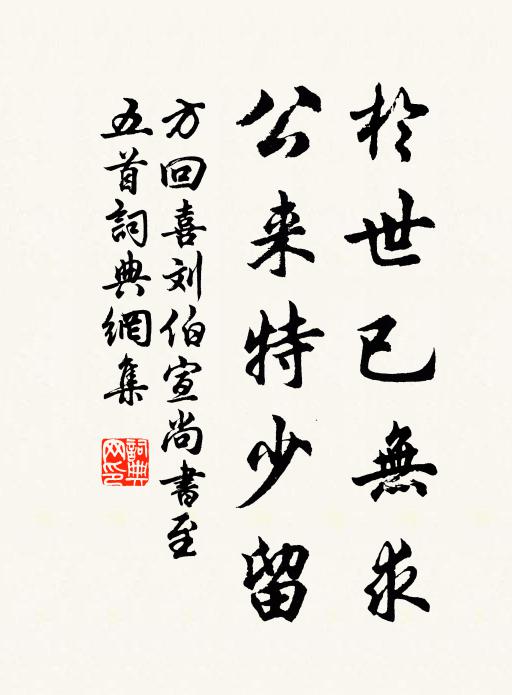 於世已無求
公来特少留
方回喜刘伯宣尚書至
五首詞典網集
詞典
网印